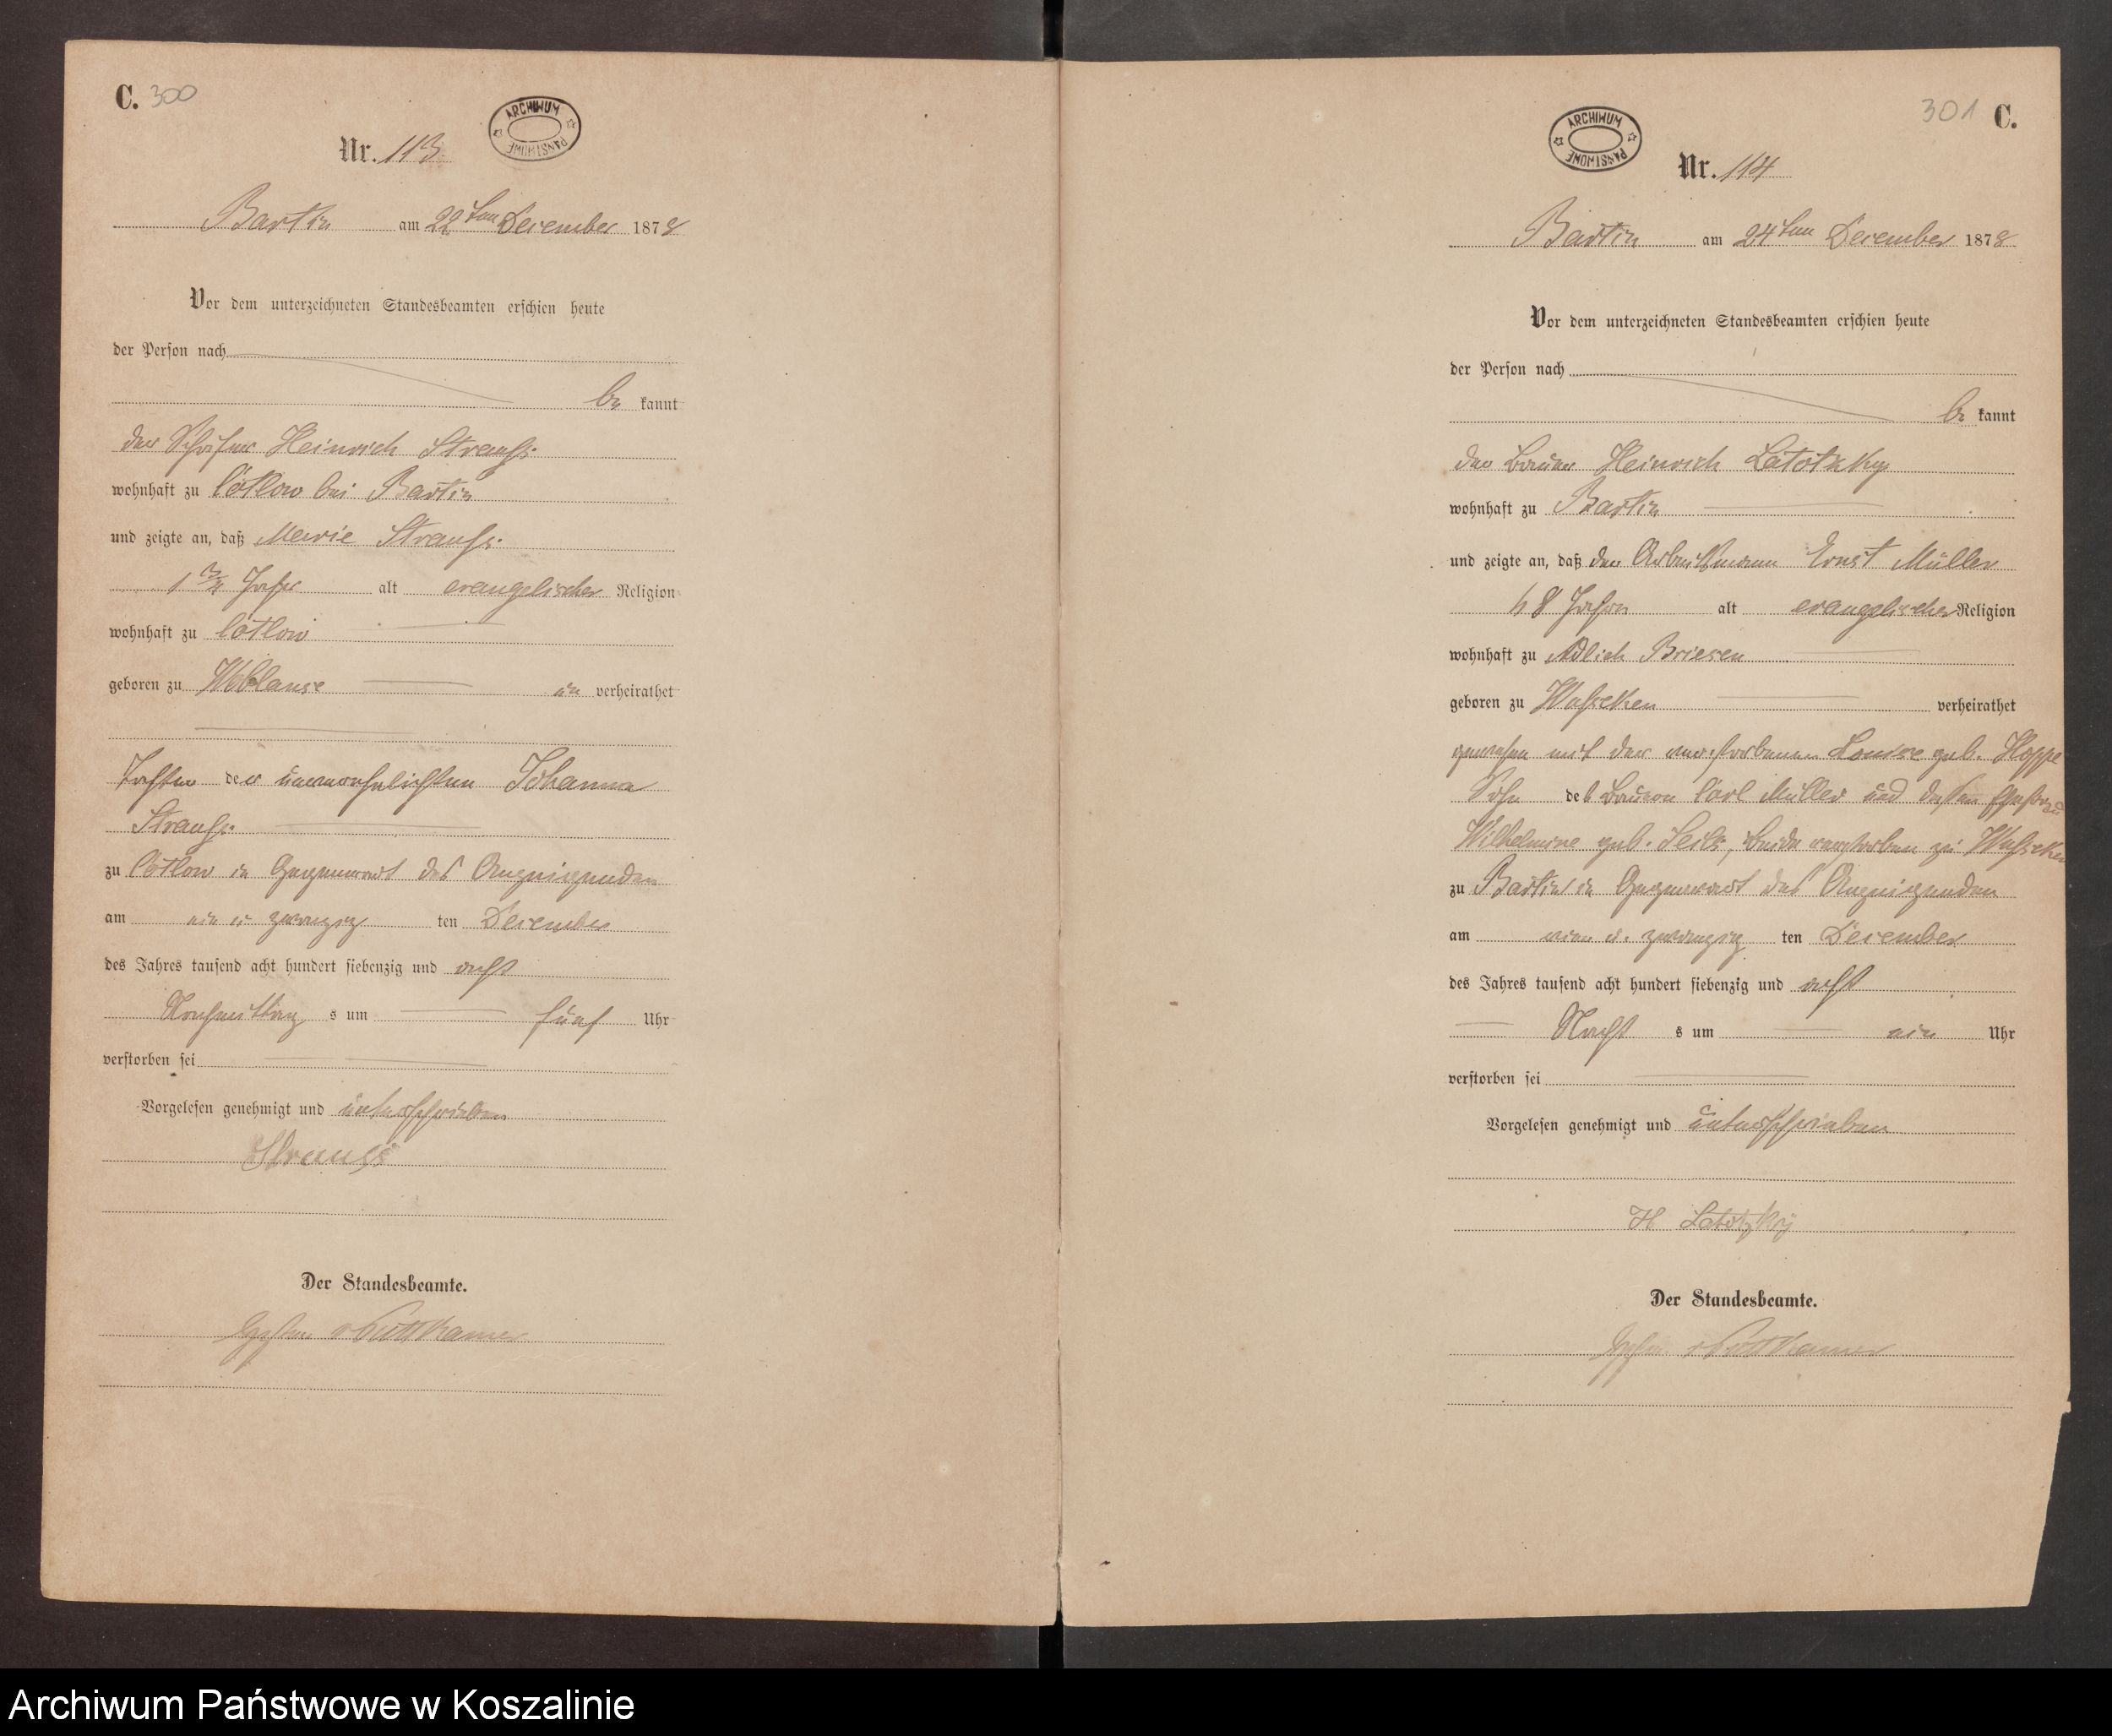 C. 300
ARCHIWUM PAŃSTWOWE
Nr. 113.
Bartin am 22ten December 1878
Vor dem unterzeichneten Standesbeamten erschien heute
der Person nach
be kannt
der Schäfer Heinrich Strauss.
wohnhaft zu Cötlow bei Bartin
und zeigte an, daß Marie Strauss.
1 3/4 Jahr alt evangelischer Religion
wohnhaft zu Cötlow
geboren zu Woblanse un verheirathet
Tochter der unverehelichten Johanna
Strauss.
zu Cötlow in Gegenwart des Anzeigenden
am ein u zwanzig ten December
des Jahres tausend acht hundert siebenzig und acht
Nachmittag s um fünf Uhr
verstorben sei
Vorgelesen genehmigt und unterschrieben
Strauss
Der Standesbeamte.
v Puttkamer
301 C.
ARCHIWUM PAŃSTWOWE
Nr. 114
Bartin am 24ten December 1878
Vor dem unterzeichneten Standesbeamten erschien heute
der Person nach
be kannt
der Bauer Heinrich Latotzky
wohnhaft zu Bartin
und zeigte an, daß der Arbeitsmann Ernst Müller
8 Jahre alt evangelischer Religion
wohnhaft zu Adlich Briesen
geboren zu Wusseken verheirathet
gewesen mit der verstorbenen Louise geb. Hoppe
Sohn des Bauern Carl Müller und dessen Ehefrau
Wilhelmine geb. Seils, beide verstorben zu Wusseken
zu Bartin in Gegenwart des Anzeigenden
am vier u. zwanzig ten December
des Jahres tausend acht hundert siebenzig und acht
Nacht s um ein Uhr
verstorben sei
Vorgelesen genehmigt und unterschrieben
H Latotzky
Der Standesbeamte.
v Puttkamer
Archiwum Państwowe w Koszalinie